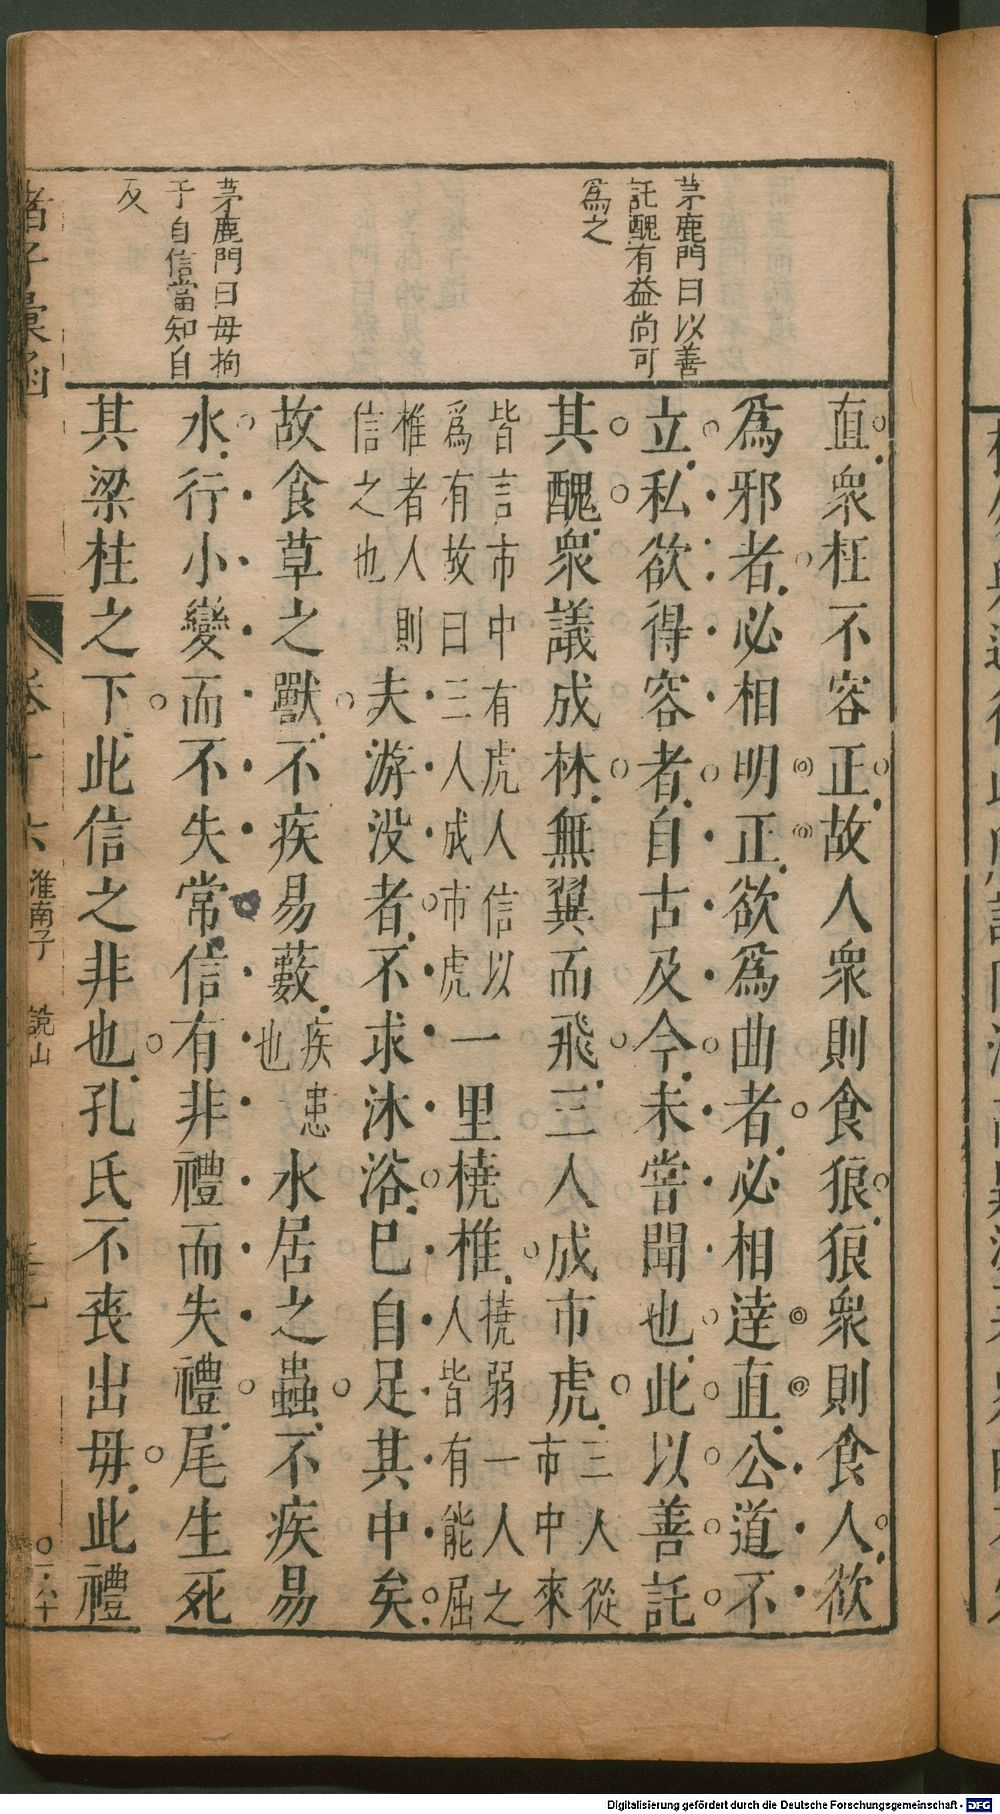 茅鹿門曰以善
託醜有益尚可
爲之
茅鹿門曰毋拘
于自信當知自
反
直衆枉不容正故人衆則食狼狼衆則食人欲
爲邪者必相明正欲爲曲者必相逹直公道不
立私欲得容者自古及今未嘗聞也此以善託
其醜衆議成林無翼而飛三人成市虎三人從
市中來
皆言市中有虎人信以
爲有故曰三人成市虎
一里橈椎撓弱一人之
人皆有能屈
椎者人則
信之也
夫游没者不求沐浴巳自足其中矣
故食草之獸不疾易藪疾患
也
水居之蟲不疾易
水行小變而不失常信有非禮而失禮尾生死
其梁柱之下此信之非也孔氏不喪出毋此禮
諸子彙函
卷十六
淮南子
說山